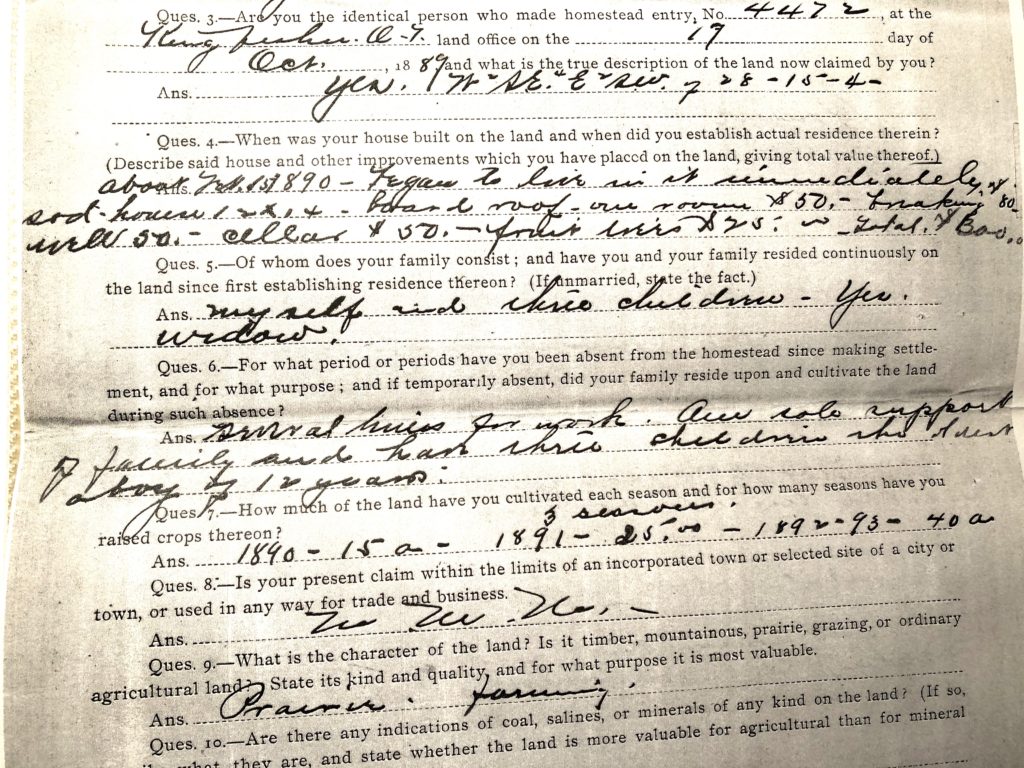 Ques. 3.—Are you the identical person who made homestead entry, No. 4472, at the
King fisher. O.T. land office on the 19 day of
Oct., 1889, and what is the true description of the land now claimed by you?
Ans. yes. W² SE. & E² SW. of 28-15-4-
Ques. 4.—When was your house built on the land and when did you establish actual residence therein?
(Describe said house and other improvements which you have placed on the land, giving total value thereof.)
Ans. about Feb. 1st 1890 - Began to live in it immediately,
sod-house 12x14 - board roof - one room $50.- breaking 80-
well 50.- cellar $50.- fruit trees $25. - Total.
Ques. 5.—Of whom does your family consist; and have you and your family resided continuously on
the land since first establishing residence thereon? (If unmarried, state the fact.)
Ans. myself and three children - Yes.
widow.
Ques. 6.—For what period or periods have you been absent from the homestead since making settle-
ment, and for what purpose; and if temporarily absent, did your family reside upon and cultivate the land
during such absence?
Ans. Several times for work. Am sole support
of family and have three children the oldest
a boy of 12 years.
Ques. 7.—How much of the land have you cultivated each season and for how many seasons have you
raised crops thereon? 3 seasons.
Ans. 1890 - 15 a - 1891 - 25.00 - 1892-93 - 40 a
Ques. 8.—Is your present claim within the limits of an incorporated town or selected site of a city or
town, or used in any way for trade and business.
Ans. No No No.-
Ques. 9.—What is the character of the land? Is it timber, mountainous, prairie, grazing, or ordinary
agricultural land? State its kind and quality, and for what purpose it is most valuable.
Ans. Prairie. farming.
Ques. 10.—Are there any indications of coal, salines, or minerals of any kind on the land? (If so,
what they are, and state whether the land is more valuable for agricultural than for mineral